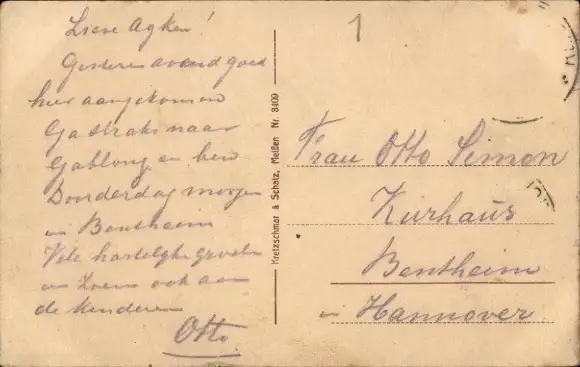 Lieve Agken!
Gisteren avond goed
hier aangekomen
Ga straks naar
Gablonz en ben
Donderdag morgen
in Bentheim
Vele hartelijke groeten
en Zoenen ook aan
de kinderen
Otto
Kretzschmar & Schatz, Meißen Nr. 8409
1
Frau Otto Simon
Kurhaus
Bentheim
in Hannover